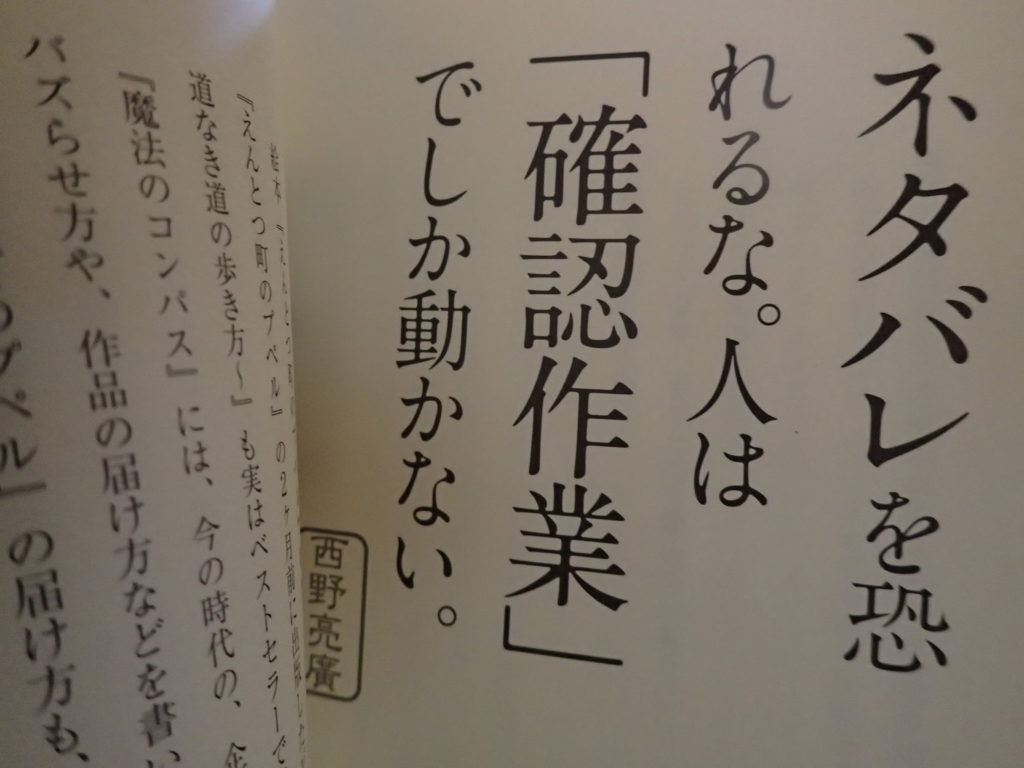 ネタバレを恐
れるな。人は
「確認作業」
でしか動かない。
西野亮廣
『えんとつ町のプペル』の2ヶ月前に出版した
道なき道の歩き方～』も実はベストセラーで
『魔法のコンパス』には、今の時代の、
バズらせ方や、作品の届け方などを書い
プペル』の届け方も、